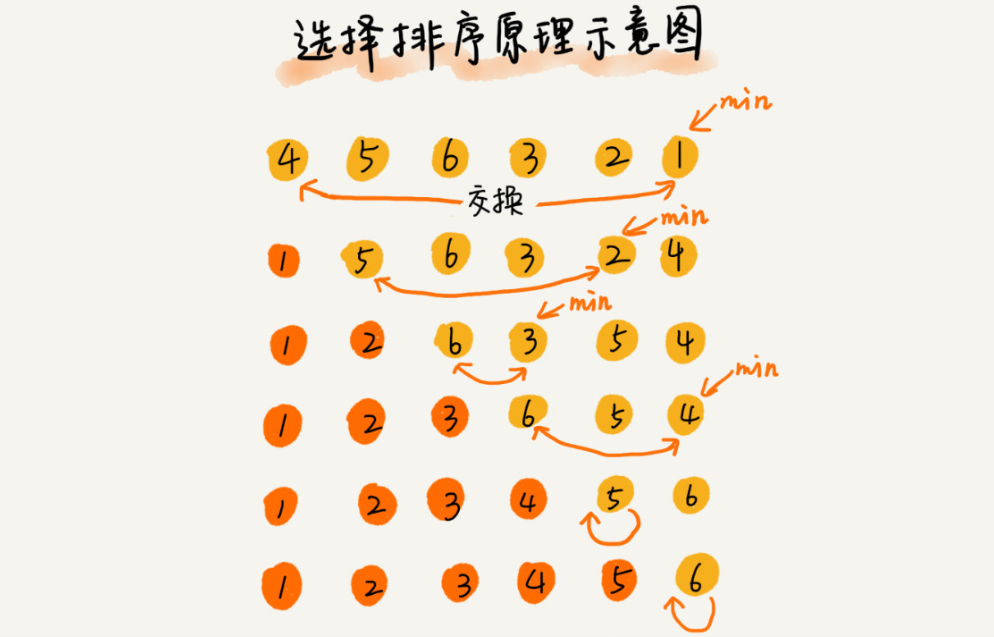 选择排序原理示意图
min
4 5 6 3 2 1
交换
min
1 5 6 3 2 4
min
1 2 6 3 5 4
min
1 2 3 6 5 4
1 2 3 4 5 6
1 2 3 4 5 6